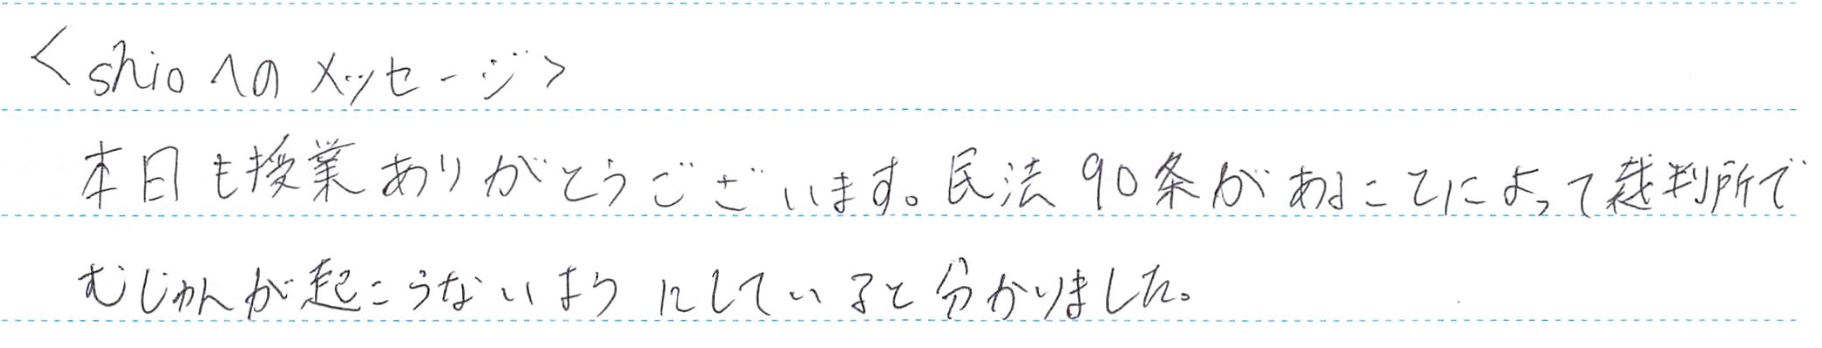 <shioへのメッセージ>
本日も授業ありがとうございます。民法90条があることによって裁判所で
むじゅんが起こらないようにしていると分かりました。